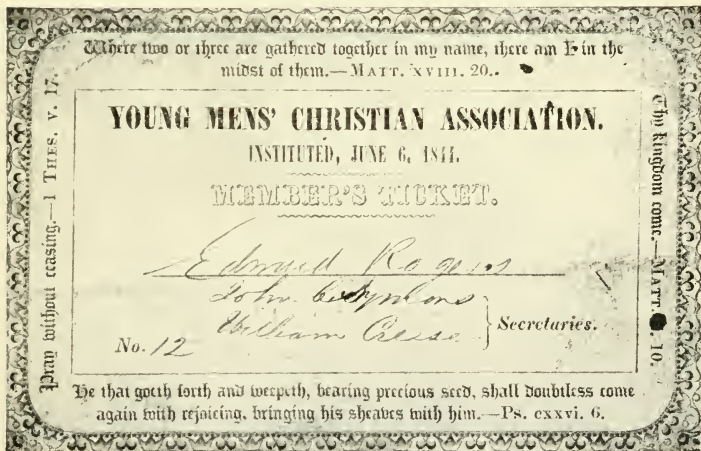 Where two or three are gathered together in my name, there am I in the
midst of them.—MATT. XVIII. 20.
Pray without ceasing.—1 THES. v. 17.
YOUNG MENS' CHRISTIAN ASSOCIATION.
INSTITUTED, JUNE 6, 1844.
MEMBER'S TICKET.
Edmund Rogers
John
William Creese
Secretaries.
No. 12
Thy kingdom come.—MATT. 10.
He that goeth forth and weepeth, bearing precious seed, shall doubtless come
again with rejoicing, bringing his sheaves with him.—Ps. cxxvi. 6.